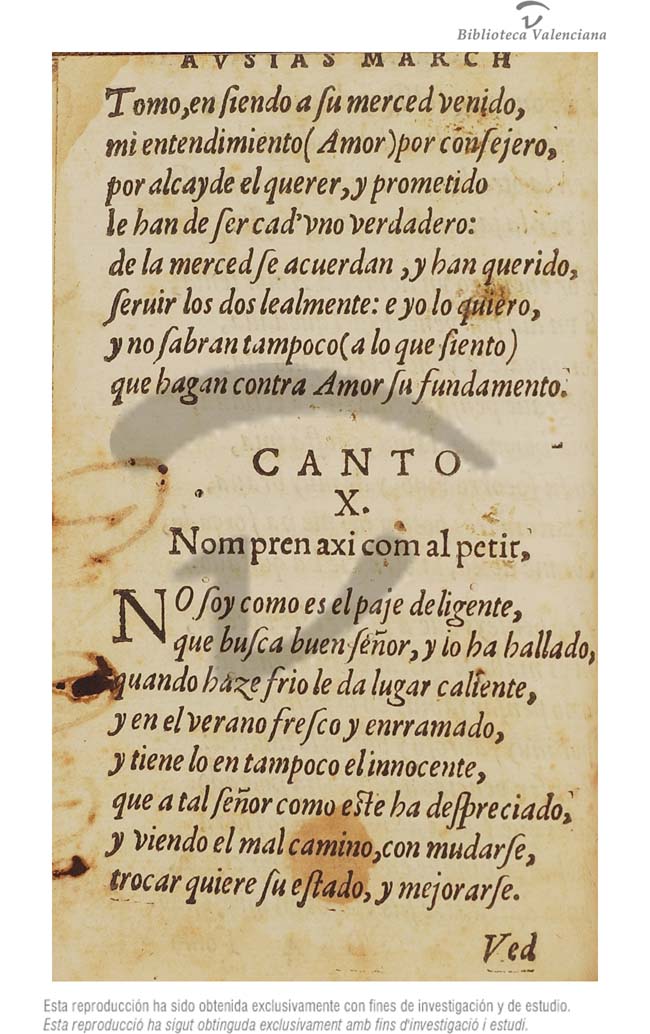 Biblioteca Valenciana
AVSIAS MARCH
Tomo, en ſiendo a ſu merced venido,
mi entendimiento (Amor) por conſejero,
por alcayde el querer, y prometido
le han de ſer cad'vno verdadero:
de la merced ſe acuerdan, y han querido,
ſeruir los dos lealmente: e yo lo quiero,
y no ſabran tampoco (a lo que ſiento)
que hagan contra Amor ſu fundamento.
CANTO
X.
Nom pren axi com al petit,
NO ſoy como es el paje deligente,
que buſca buen ſeñor, y lo ha hallado,
quando haze frio le da lugar caliente,
y en el verano freſco y enrramado,
y tiene lo en tampoco el innocente,
que a tal ſeñor como eſte ha deſpreciado,
y viendo el mal camino, con mudarſe,
trocar quiere ſu eſtado, y mejorarſe.
Ved
Esta reproducción ha sido obtenida exclusivamente con fines de investigación y de estudio.
Esta reproducció ha sigut obtinguda exclusivament amb fins d'investigació i estudi.